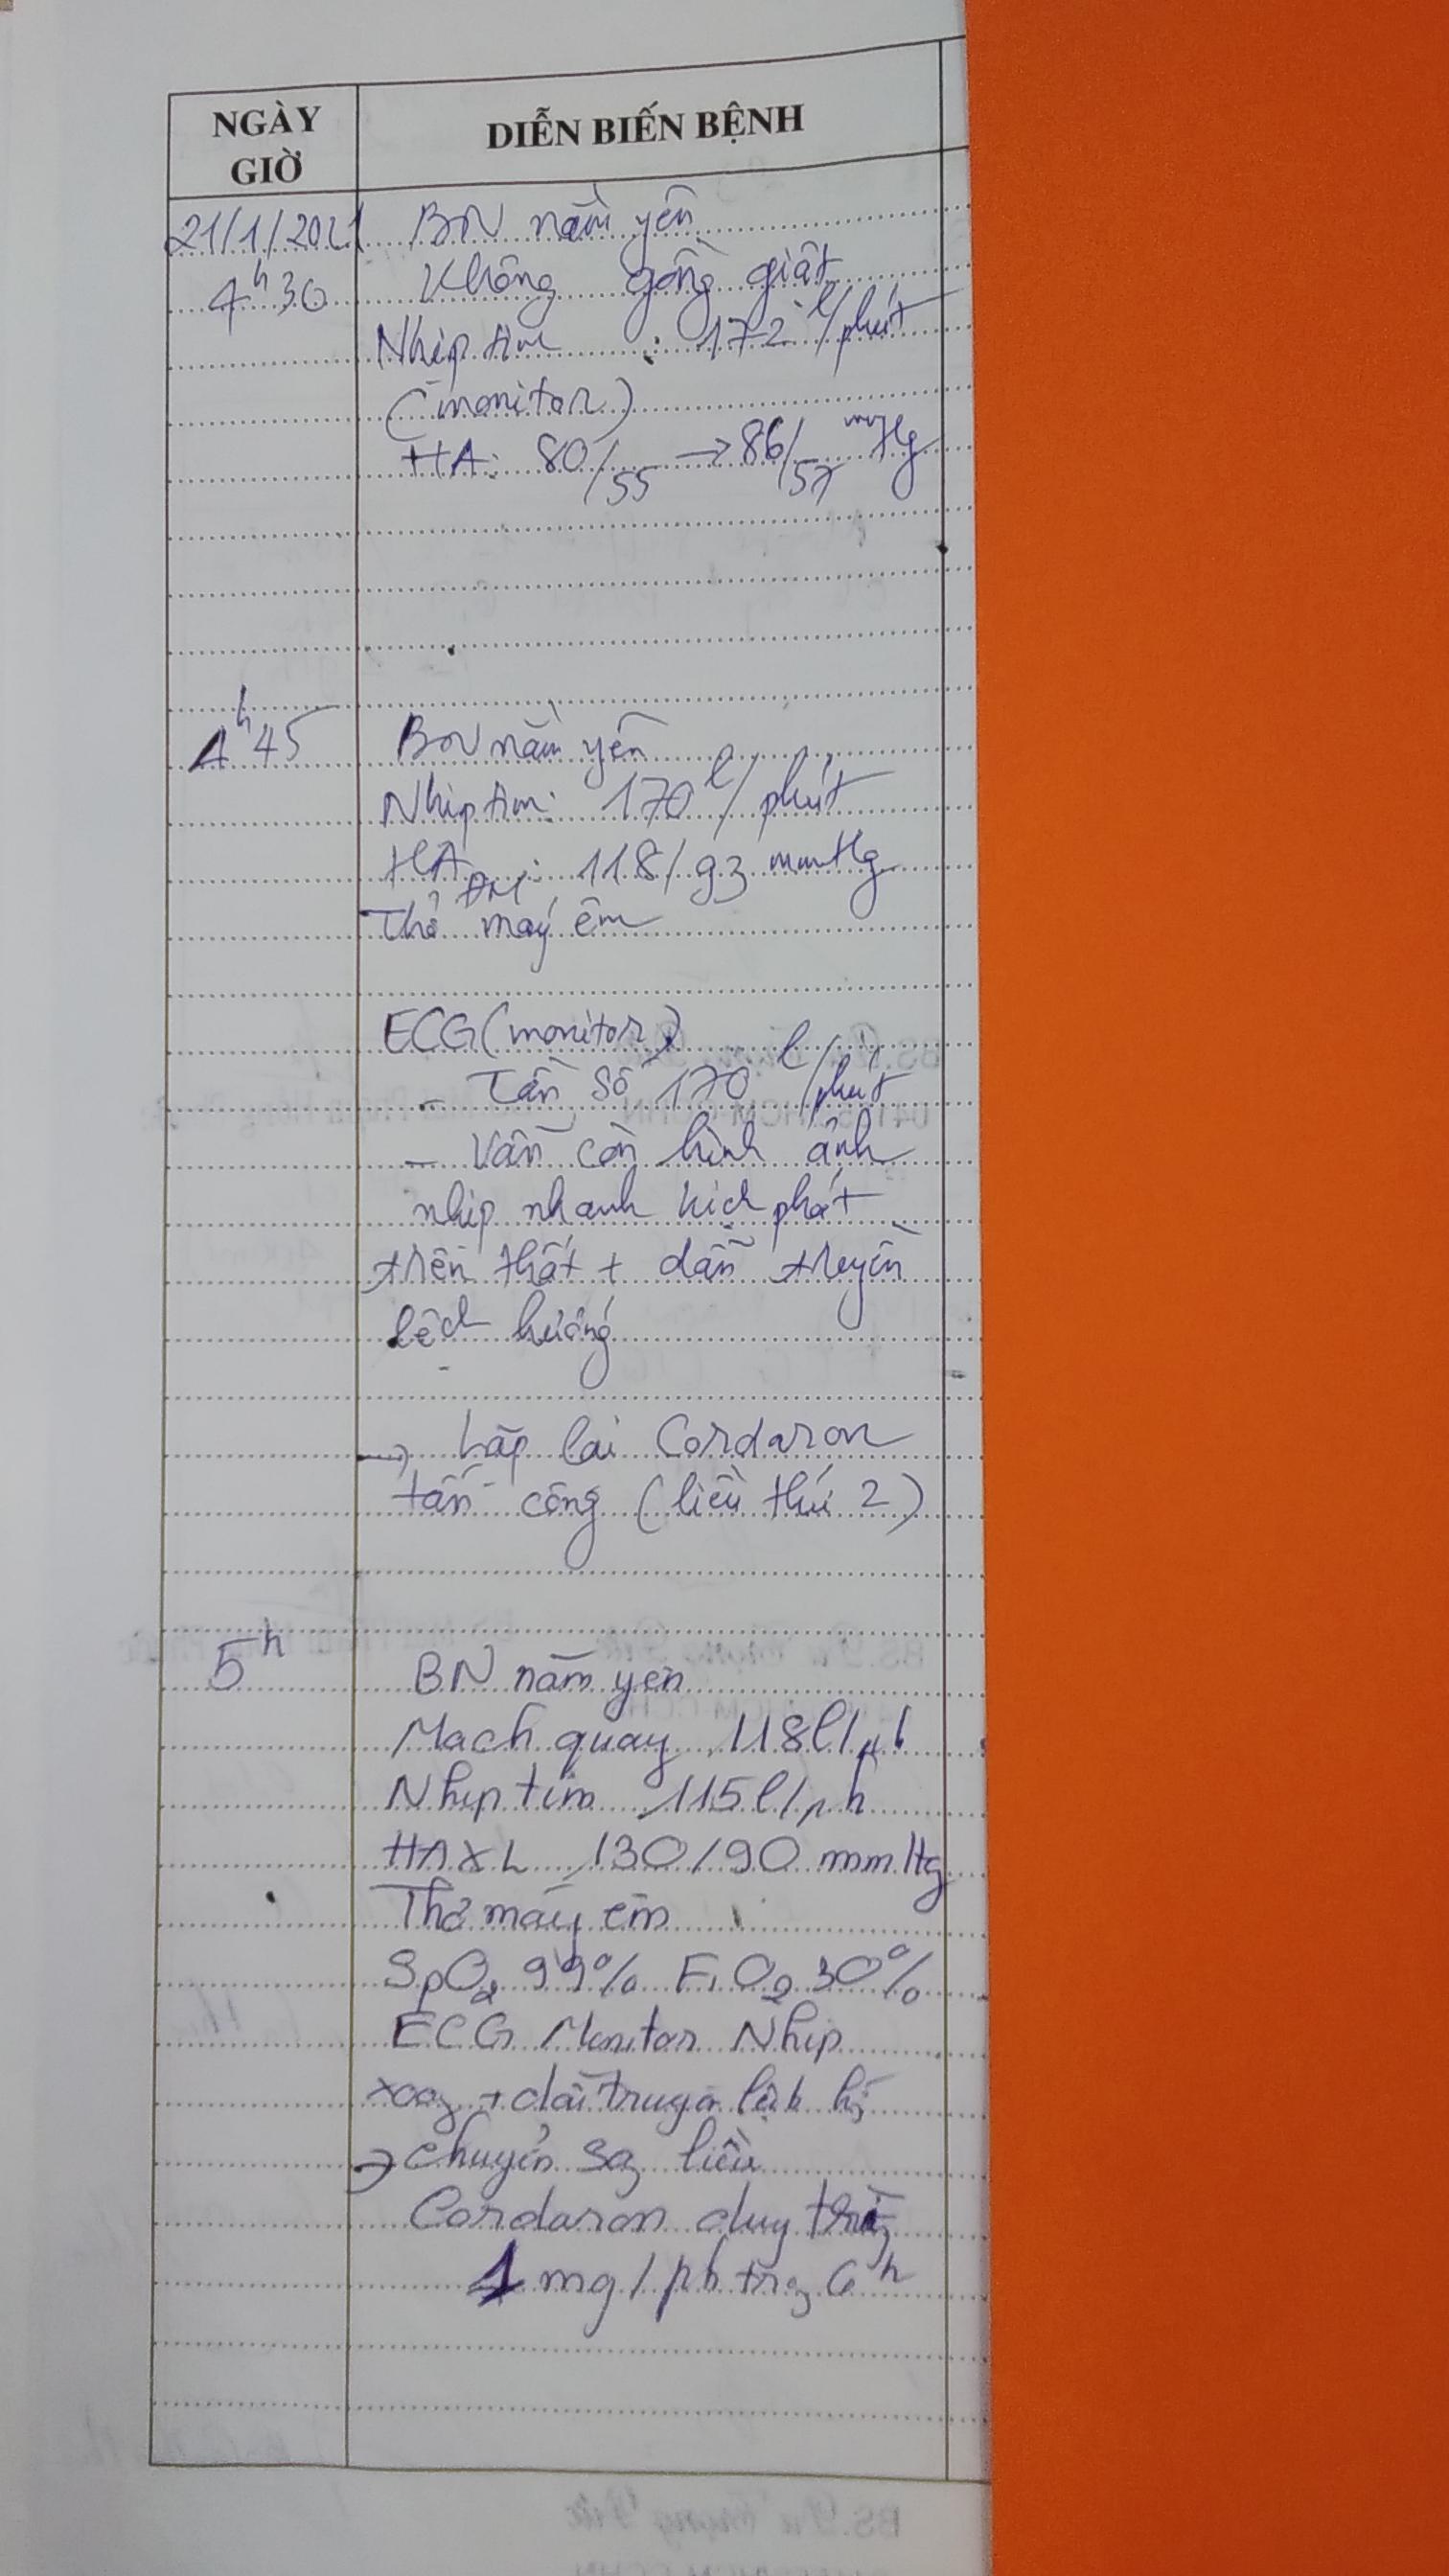 NGÀY
GIỜ
DIỄN BIẾN BỆNH
21/1/2021 BN nằm yên
4h30 Không gồng giật
Nhịp tim : 172 l/phút
(monitor)
HA: 80/55 → 86/57 mmHg
4h45 BN nằm yên
Nhịp tim: 170 l/phút
HA ĐM : 118/93 mmHg
Thở máy êm
ECG (monitor)
- Tần số 170 l/phút
- Vẫn còn hình ảnh
nhịp nhanh kịch phát
trên thất + dẫn truyền
lệch hướng
→ Lặp lại Cordaron
tấn công (liều thứ 2)
5h BN nằm yên
Mạch quay 118l/ph
Nhịp tim 115l/ph
HAXL 130/90 mmHg
Thở máy êm
SpO2 99% FiO2 30%
ECG Monitor Nhịp
xoang + dẫn truyền lệch
→ chuyển sang liều
Cordaron duy trì
1 mg/ph trong 6h